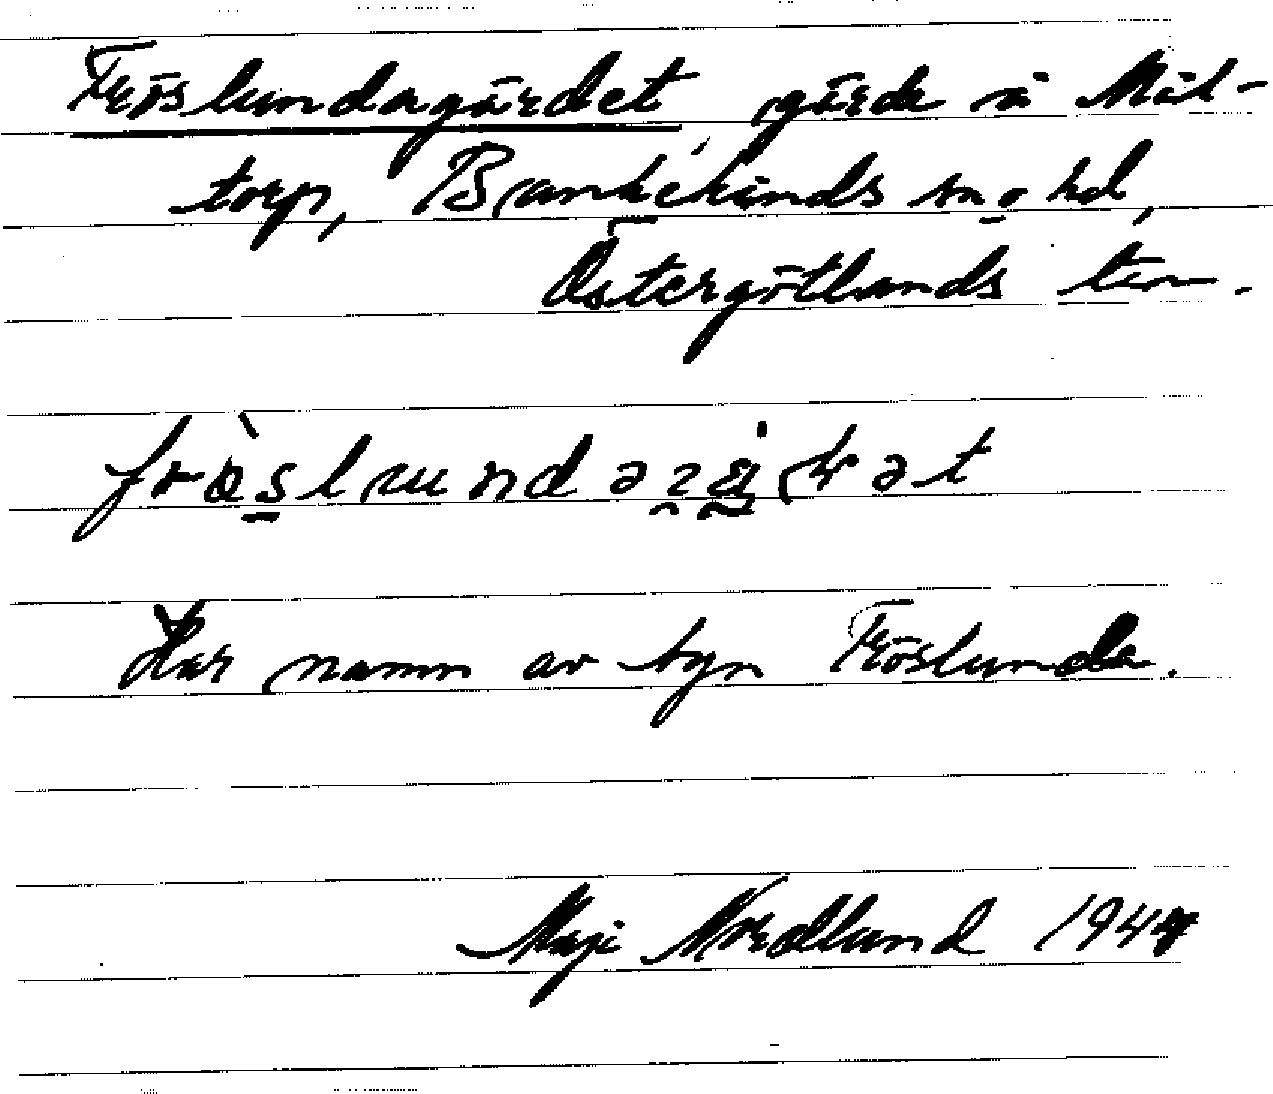 Fröslundagärdet, gärde i Mål-
torp, Bankekinds sn o hd,
Östergötlands län.
Har namn av byn Fröslunda.
Maji Nordlund 1944